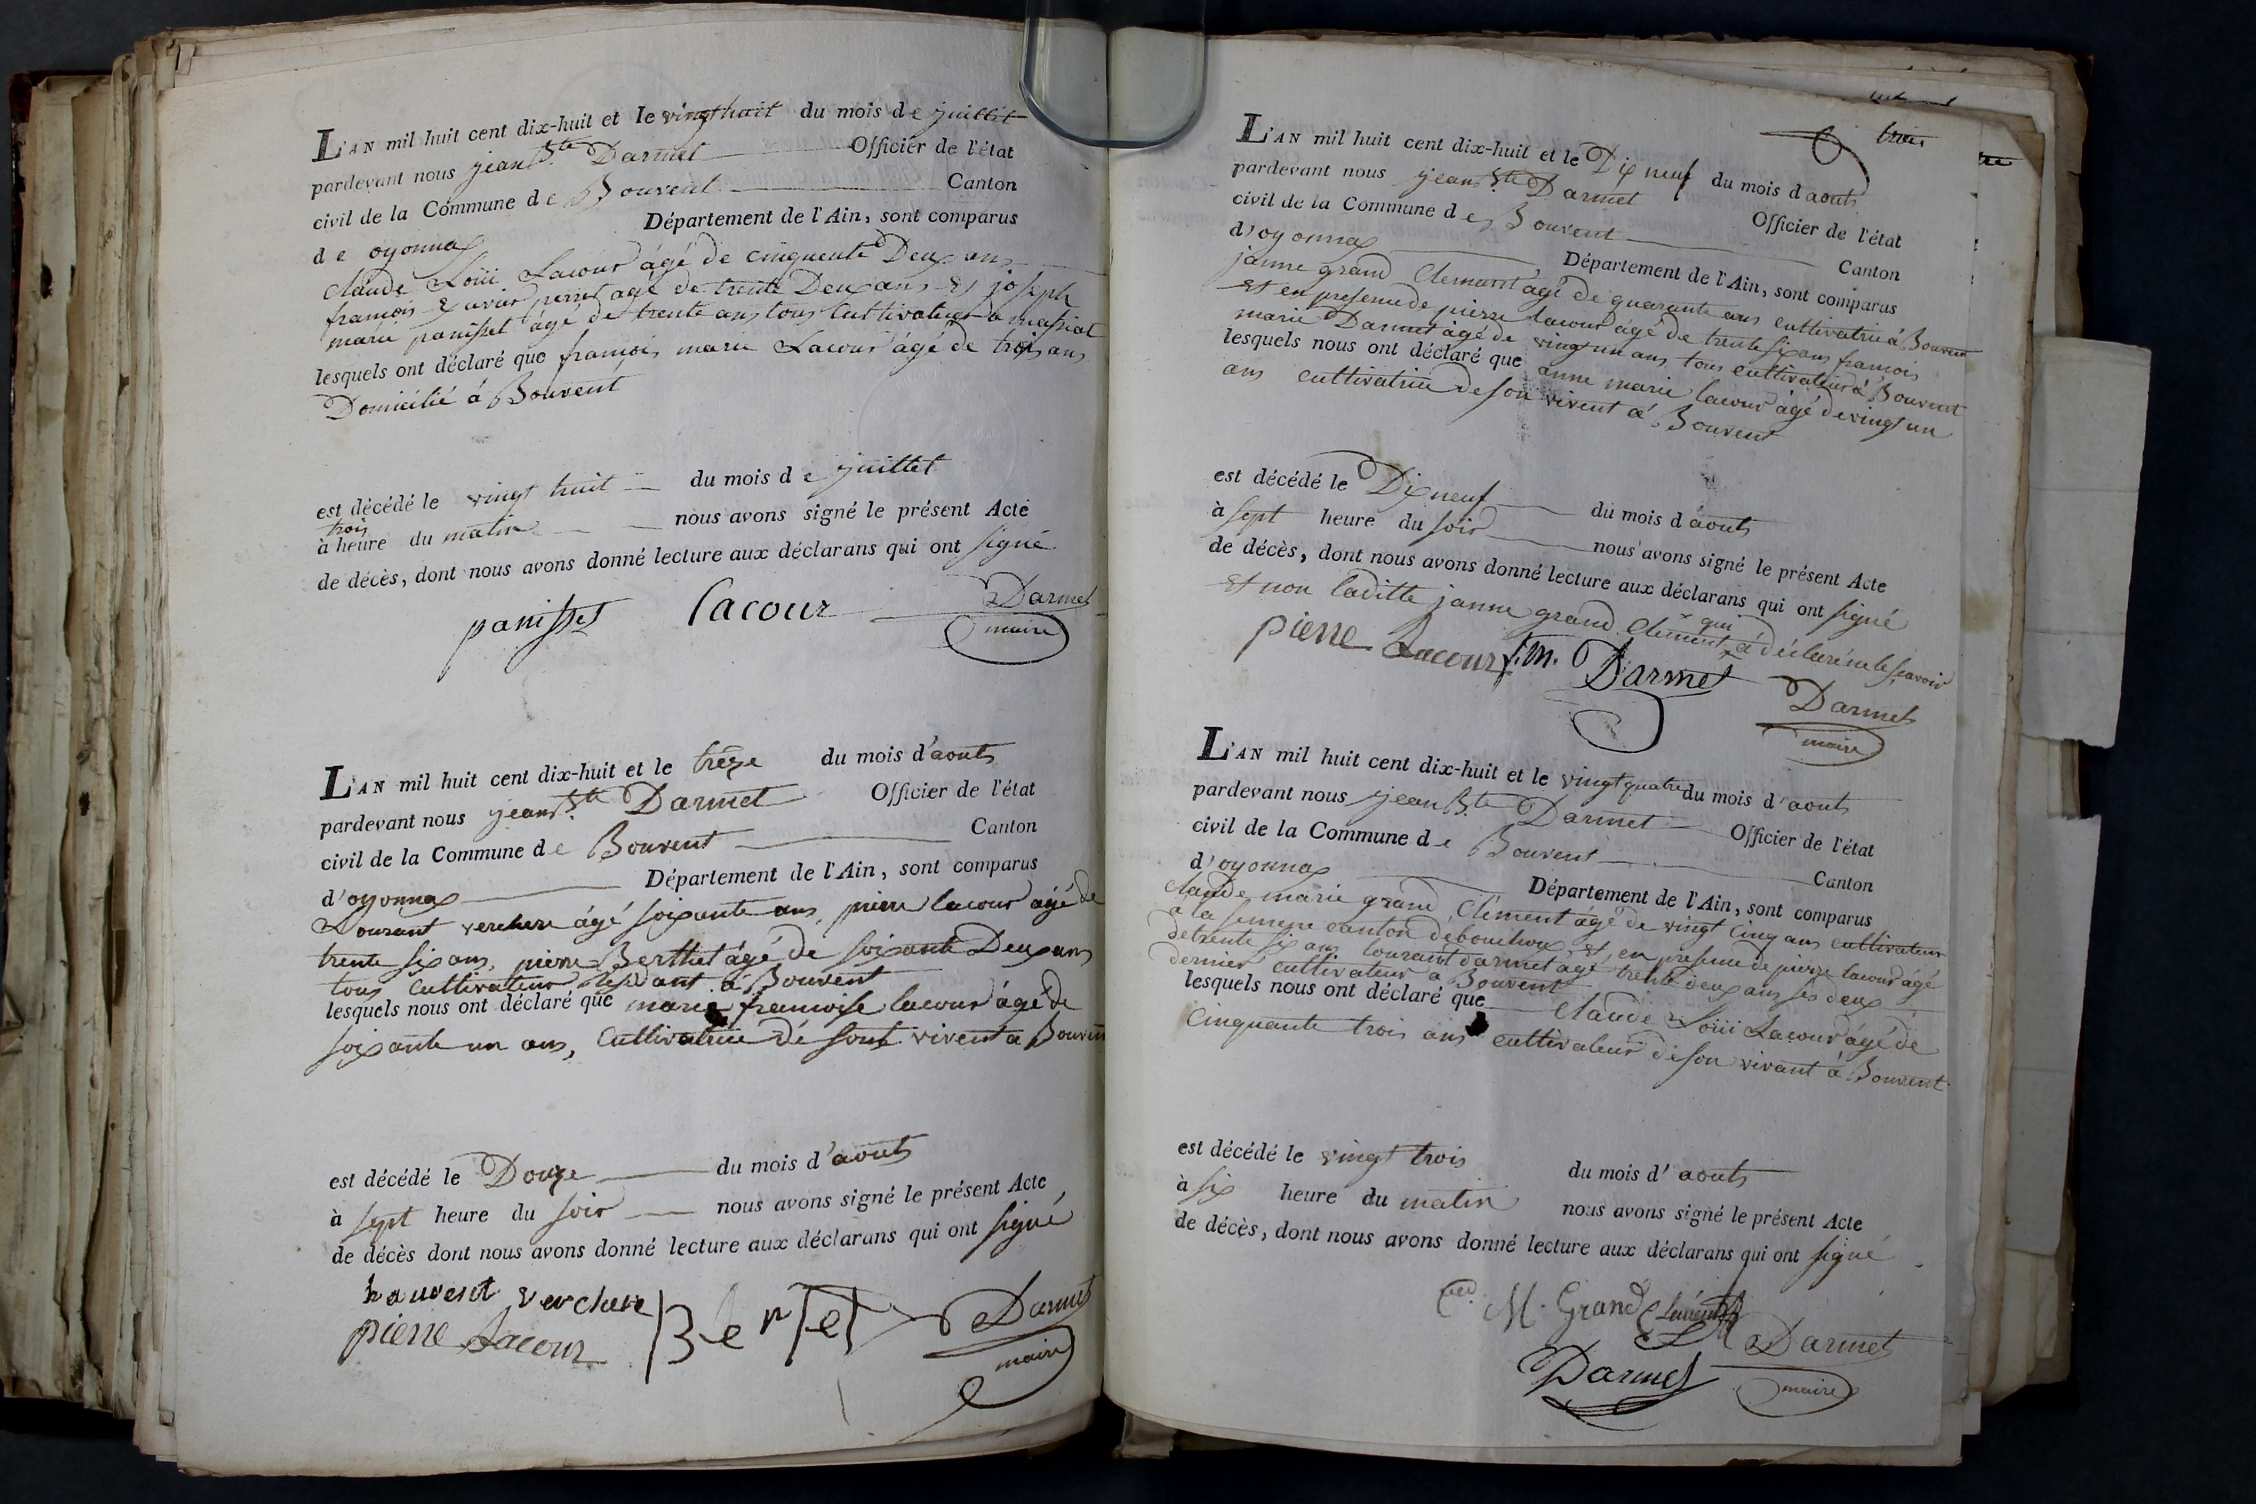 L'AN mil huit cent dix-huit et le vingt huit du mois de juillet
pardevant nous jean Bte Darmet Officier de l'état
civil de la Commune de Bouvent Canton
de oyonnax Département de l'Ain, sont comparus
claude Loüi Lacour âgé de cinquente Deux ans
françois Xavier perret agé de trente Deux ans Et joseph
marie panisset âgé de trente ans tous Cultivateur a massiat
lesquels ont déclaré que françois marie Lacour âgé de trois ans
Domicilié á Bouvent
est décédé le vingt huit du mois de juillet
trois
à heure du matin nous avons signé le présent Acte
de décès, dont nous avons donné lecture aux déclarans qui ont signé
panisset Lacour Darmet
maire
L'AN mil huit cent dix-huit et le trêze du mois d'aouts
pardevant nous jean Bte Darmet Officier de l'état
civil de la Commune de Bouvent Canton
d'oyonnax Département de l'Ain, sont comparus
Lourant verchere âgé soixante ans, pierre lacour âgé de
trente six ans, pierre Berthet âgé de soixante Deux ans
tous cultivateur Residant á Bouvent
lesquels nous ont déclaré que marie francoise lacour âgé de
soixante un ans, Cultivatrice dé sont vivent a Bouvent
est décédé le Douze du mois d'aouts
à sept heure du soir nous avons signé le présent Acte
de décès dont nous avons donné lecture aux déclarans qui ont signé
Lauvent verchere Bertet Darmet
pierre Lacour maire
trois
L'AN mil huit cent dix-huit et le Dix neuf du mois d'aouts
pardevant nous jean Bte Darmet Officier de l'état
civil de la Commune de Bouvent Canton
d'oyonnax Département de l'Ain, sont comparus
janne grand Clemant âgé de quarante ans cultivatrice á Bouvent
Et en presence de pierre lacour âgé de trente six ans françois
marie Darmet âgé de vingt un ans tous cultivateur á Bouvent
lesquels nous ont déclaré que anne marie lacour âgé de vingt un
ans cultivatrice de son vivent á Bouvent
est décédé le Dix neuf du mois d'aouts
à sept heure du soir nous avons signé le présent Acte
de décès, dont nous avons donné lecture aux déclarans qui ont signé
Et non laditte janne grand Clement qui á déclaré ne le scavoir
pierre Lacour f. m. Darmet
Darmet
maire
L'AN mil huit cent dix-huit et le vingt quatre du mois d'aouts
pardevant nous jean Bte Darmet Officier de l'état
civil de la Commune de Bouvent Canton
d'oyonnax Département de l'Ain, sont comparus
claude marie grand Clément âgé de vingt Cinq ans cultivateur
a la canton débouchoux, Et en presence de pierre lacour âgé
de trente six ans lourant darmet âgé trente deux ans ses deux
dernier cultivateur a Bouvent
lesquels nous ont déclaré que Claude Loüi Lacour âgé dé
Cinquante trois ans cultivateur dé son vivant á Bouvent
est décédé le vingt trois du mois d'aouts
à six heure du matin nous avons signé le présent Acte
de décès, dont nous avons donné lecture aux déclarans qui ont signé
M. Grand Clément
Darmet Darmet
maire